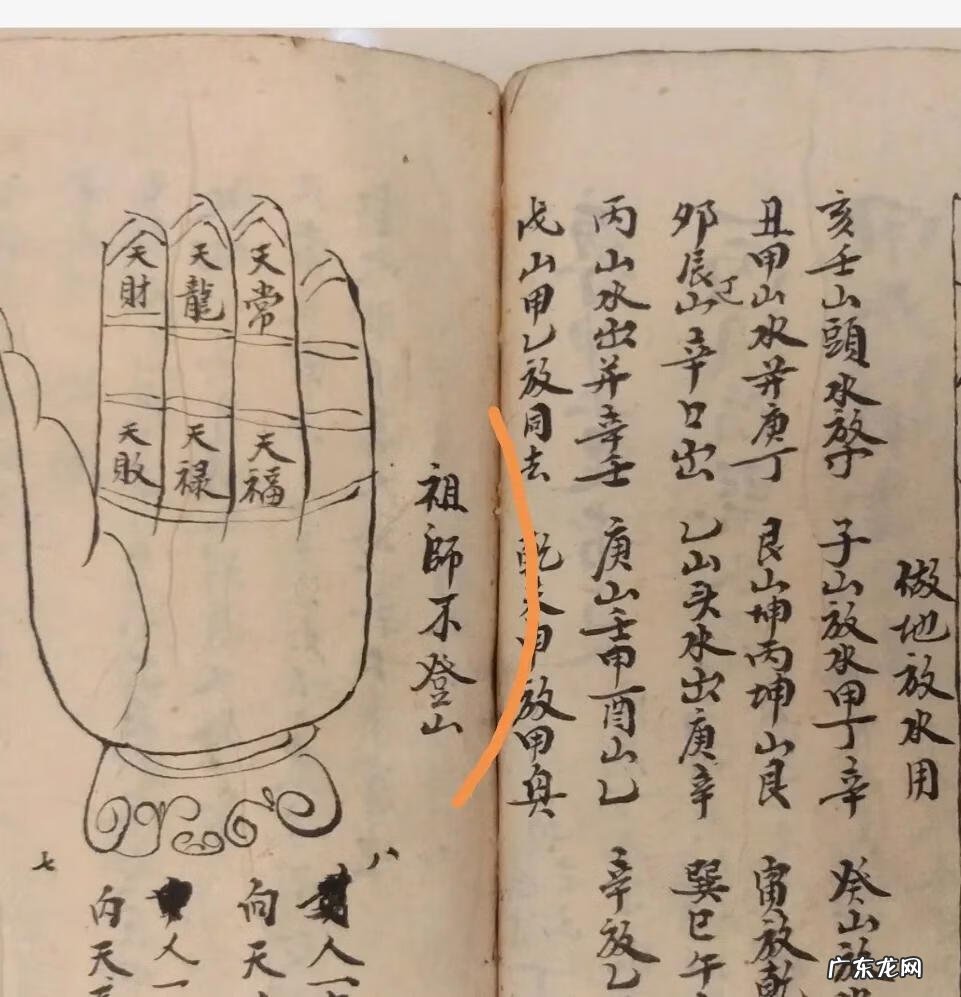 做地放水用
亥壬山頭水放
子山放水甲丁辛
癸山放
丑甲山水并庚丁
艮山坤丙坤山艮
寅放乾
卯辰山辛口出
乙山头水出庚辛
巽巳午
丙山水出并辛壬
庚山壬甲酉山乙
辛放乙
戌山甲乙放同去
放甲
祖師不登山
天常
天龍
天財
天福
天禄
天敗
八
人一
向天
人一
向天
七
广东龙网